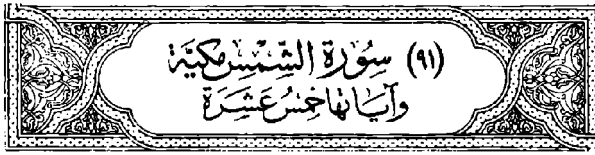 (٩١) سُورَة الشَّمْسِ مَكِّيَّة
وَآيَاتُهَا خَمْسُ عَشَرَة